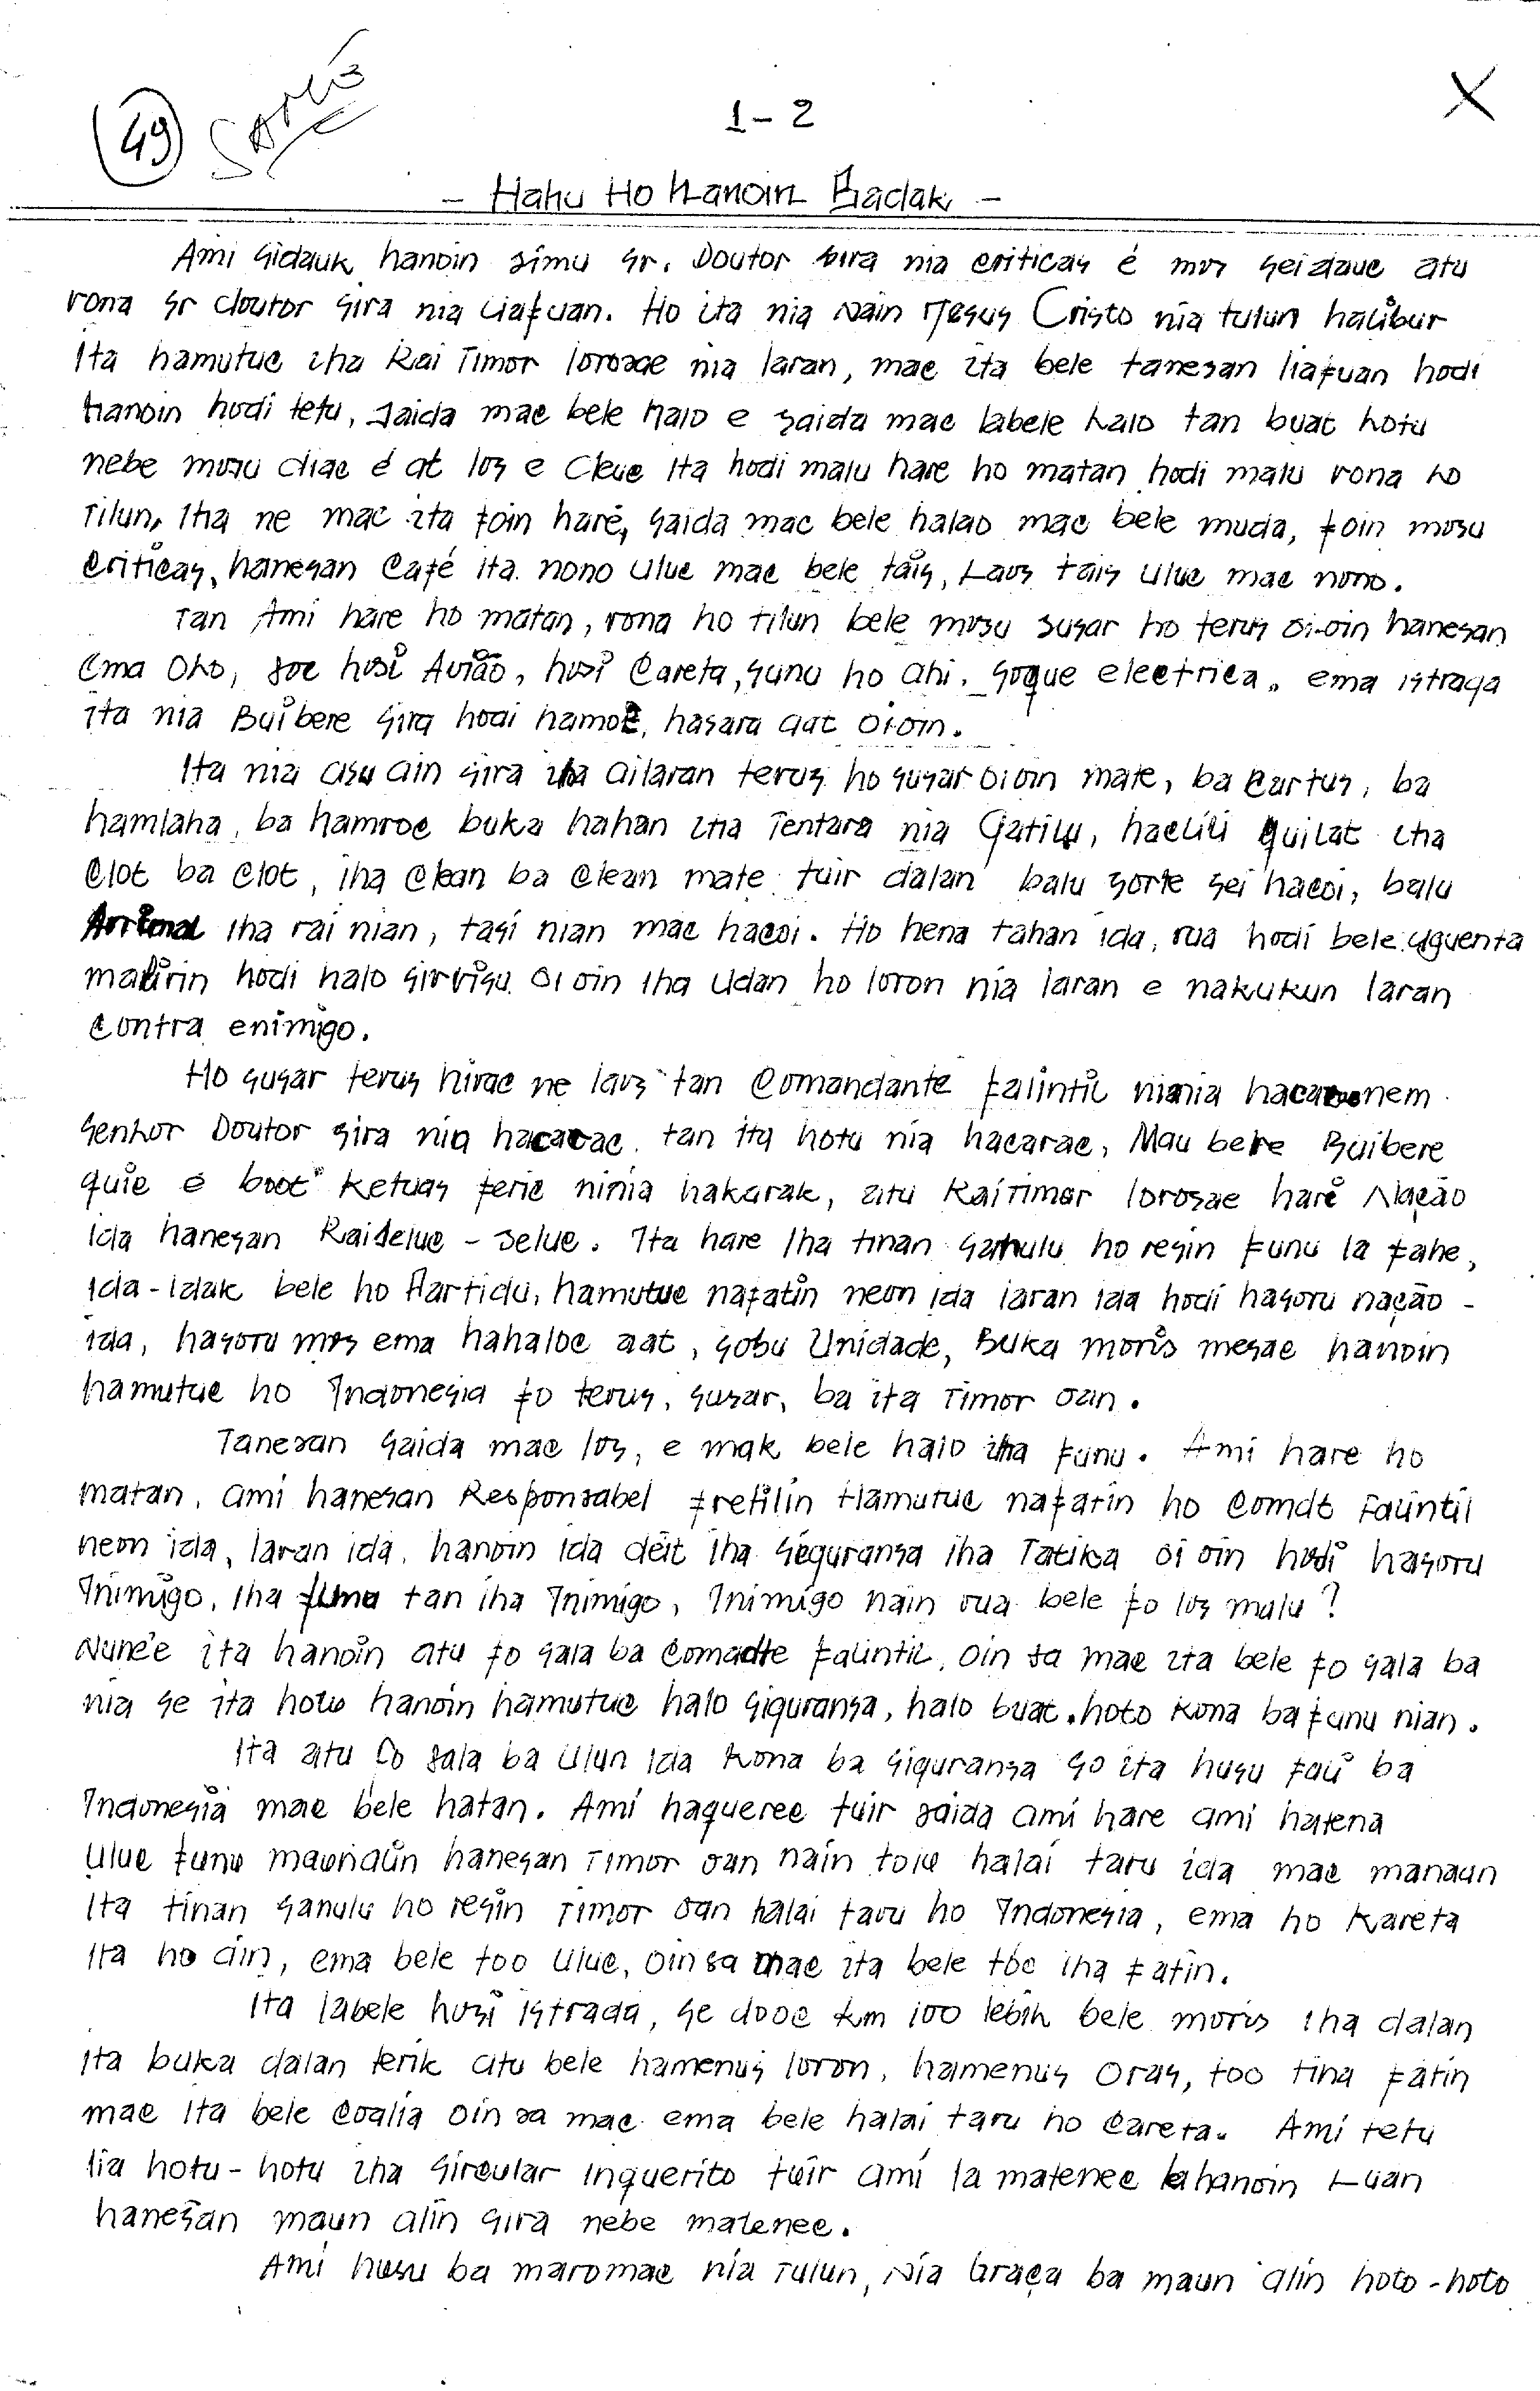 49
1-2
X
- Hahu Ho Hanoin Badak -
Ami Sidauk hanoin simu Sr. Doutor sira nia criticas é mos seidauc atu
rona Sr doutor sira nia liafuan. Ho ita nia Nain Jesus Cristo nia tulun halibur
Ita hamutuc iha Rai Timor lorosae nia laran, mac ita bele tanesan liafuan hodi
hanoin hodi tetu, saida mac bele halo e saida mac labele halo tan buat hotu
nebe mosu diac é at los e Cleue Ita hodi malu hare ho matan hodi malu rona ho
Tilun, Iha ne mac ita foin haré, saida mac bele halao mac bele muda, foin mosu
Criticas, hanesan Café ita nono uluc mac bele tais, Laos tais uluc mac nono.
Tan Ami hare ho matan, rona ho tilun bele mosu susar ho terus oi-oin hanesan
Ema Oho, soe husi Avião, husi Careta, sunu ho ahi, soque electrica, ema istraga
ita nia Buibere sira hodi hamoe, hasara aat oioin.
Ita nia asu ain sira iha ailaran terus ho susar oioin mate, ba Cartus, ba
hamlaha, ba hamroc buka hahan iha Tentara nia Gatilu, haelili quilat iha
Clot ba Clot, iha Clean ba Clean mate tuir dalan balu sorte sei hacoi, balu
Animal iha rai nian, tasi nian mac hacoi. Ho hena tahan ida, rua hodi bele aguenta
malirin hodi halo sirvisu oi oin iha Udan ho loron nia laran e nakukun laran
Contra enimigo.
Ho susar terus hirac ne laos tan Comandante Falintil ninia
Senhor Doutor sira nia hacarac, tan ita hotu nia hacarac, Mau bere Buibere
quic e boot Ketuas feric ninia hakarak, atu Rai Timor lorosae haré Nação
ida hanesan Rai seluc - seluc. Ita hare iha tinan Sanulu ho resin Funu la fahe,
Ida-Idak bele ho Partidu, hamutuc nafatin neon ida laran ida hodi hasoru nação -
ida, hasoru mos ema hahaloc aat, sobu Unidade, Buka moris mesac hanoin
hamutuc ho Indonesia fo terus, susar, ba ita Timor oan.
Tanesan saida mac los, e mak bele halo iha Funu. Ami hare ho
matan, ami hanesan Responsabel Fretilin Hamutuc nafatin ho Comdt Falintil
neon ida, laran ida, hanoin ida deit iha Seguransa iha Tatika oi oin hodi hasoru
Inimigo, Iha funu tan iha Inimigo, Inimigo nain rua bele fo los malu?
Nune'e ita hanoin atu fo sala ba Comadte Falintil, oin sa mac ita bele fo sala ba
nia se ita hotu hanoin hamutuc halo Siguransa, halo buat hoto Kona ba Funu nian.
Ita atu fo sala ba Ulun ida Kona ba Siguransa so ita husu fali ba
Indonesia mac bele hatan. Ami haquerec tuir saida ami hare ami hatena
Uluc funu maunalin hanesan Timor oan nain tolu halai taru ida mac manaun
Ita tinan Sanulu ho resin Timor oan halai taru ho Indonesia, ema ho Kareta
Ita ho ain, ema bele too uluc, oin sa mac ita bele tóc iha Fatin.
Ita labele husi istrada, se dooc Km 100 lebih bele moris iha dalan
Ita buka dalan terik atu bele hamenus loron, hamenus Oras, too tina fatin
mac ita bele Coalia oin sa mac ema bele halai taru ho Careta. Ami tetu
lia hotu-hotu iha Sircular Inquerito tuir ami la matenec la hanoin Luan
hanesan maun alin sira nebe matenec.
Ami husu ba maromac nia Tulun, Nia Graça ba maun alin hoto-hoto